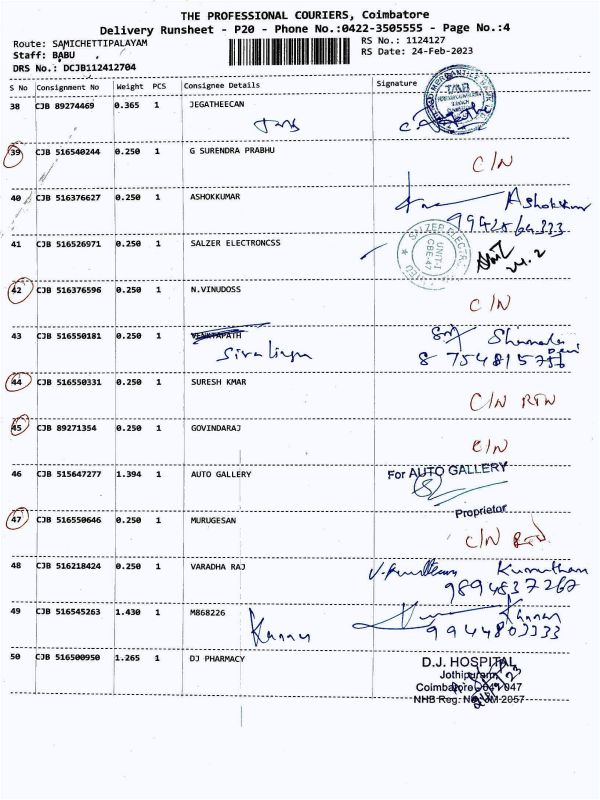 THE PROFESSIONAL COURIERS, Coimbatore
Delivery Runsheet - P20 - Phone No.:0422-3505555 - Page No.:4
Route: SAMICHETTIPALAYAM
RS No.: 1124127
Staff: BABU
RS Date: 24-Feb-2023
DRS No.: DCJB112412704
S No Consignment No Weight PCS Consignee Details Signature
38 CJB 89274469 0.365 1 JEGATHEECAN
39 CJB 516540244 0.250 1 G SURENDRA PRABHU C/N
40 CJB 516376627 0.250 1 ASHOKKUMAR Ashokkumar
41 CJB 516526971 0.250 1 SALZER ELECTRONCSS
SALZER ELECTR
UNIT-I
CBE-47
24.2
42 CJB 516376596 0.250 1 N.VINUDOSS C/N
43 CJB 516550181 0.250 1 VENKTAPATH
8754815756
44 CJB 516550331 0.250 1 SURESH KMAR C/N RTN
45 CJB 89271354 0.250 1 GOVINDARAJ C/N
46 CJB 515647277 1.394 1 AUTO GALLERY For AUTO GALLERY
Proprietor
47 CJB 516550646 0.250 1 MURUGESAN C/N RTN
48 CJB 516218424 0.250 1 VARADHA RAJ
9894837267
49 CJB 516545263 1.430 1 M868226 Kannan Kannan
9944803333
50 CJB 516500950 1.265 1 DJ PHARMACY D.J. HOSPITAL
Jothipuram
Coimbatore - 641 047
NHB Reg. No.